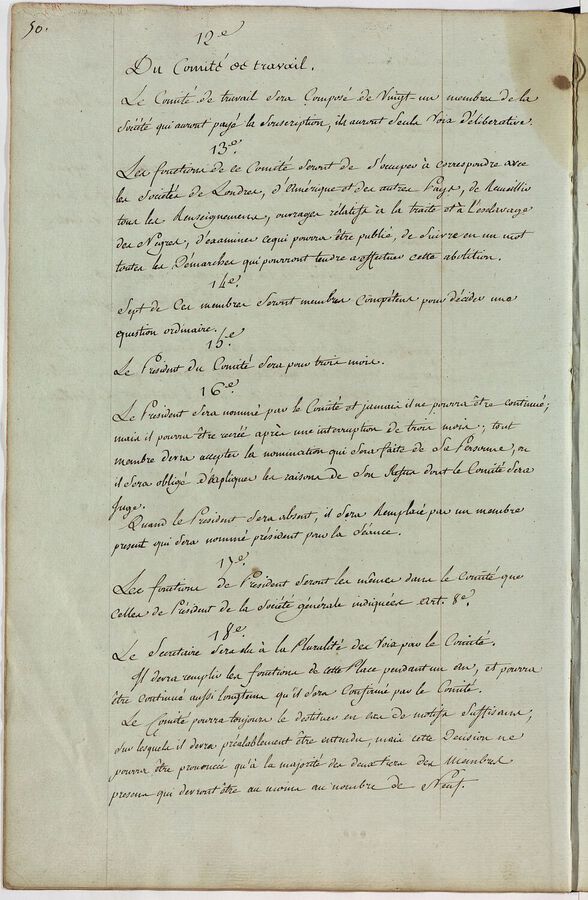 50.
12e
Du Comité de travail.
Le Comité de travail sera Composé de Vingt-un membres de la
Société qui auront payé la souscription, ils auront seuls Voix délibérative.
13e
Les fonctions de ce Comité seront de s'occuper à correspondre avec
les Sociétés de Londres, d'Amérique et des autres Pays, de Recueillir
tous les Renseignemens, ouvrages rélatifs à la traite et à l'esclavage
des Nègres, d'examiner ce qui pourra être publié, de suivre en un mot
toutes les Démarches qui pourront tendre à effectuer cette abolition.
14e
Sept de Ces membres seront membres Compétens pour décider une
question ordinaire.
15e
Le Président du Comité sera pour trois mois.
16e
Le President sera nommé par le Comité et jamais il ne pourra être continué;
mais il pourra être réélu après une interruption de trois mois; tout
membre devra accepter la nomination qui sera faite de sa Personne, ou
il sera obligé d'expliquer les raisons de son Refus dont le Comité sera
Juge.
Quand le President sera absent, il sera Remplacé par un membre
present qui sera nommé président pour la séance.
17e
Les fonctions de President seront les mêmes dans le comité que
celles de Président de la Société générale indiquées art. 8e.
18e
Le Secrétaire sera élu à la Pluralité des Voix par le Comité.
Il devra remplir les fonctions de cette Place pendant un an, et pourra
être Continué aussi longtems qu'il sera Confirmé par le Comité.
Le Comité pourra toujours le destituer en cas de motifs suffisans;
sur lesquels il devra préalablement être entendu, mais cette Decision ne
pourra être prononcée qu'à la majorité des deux tiers des Membres
presens qui devront être au moins au nombre de Neuf.